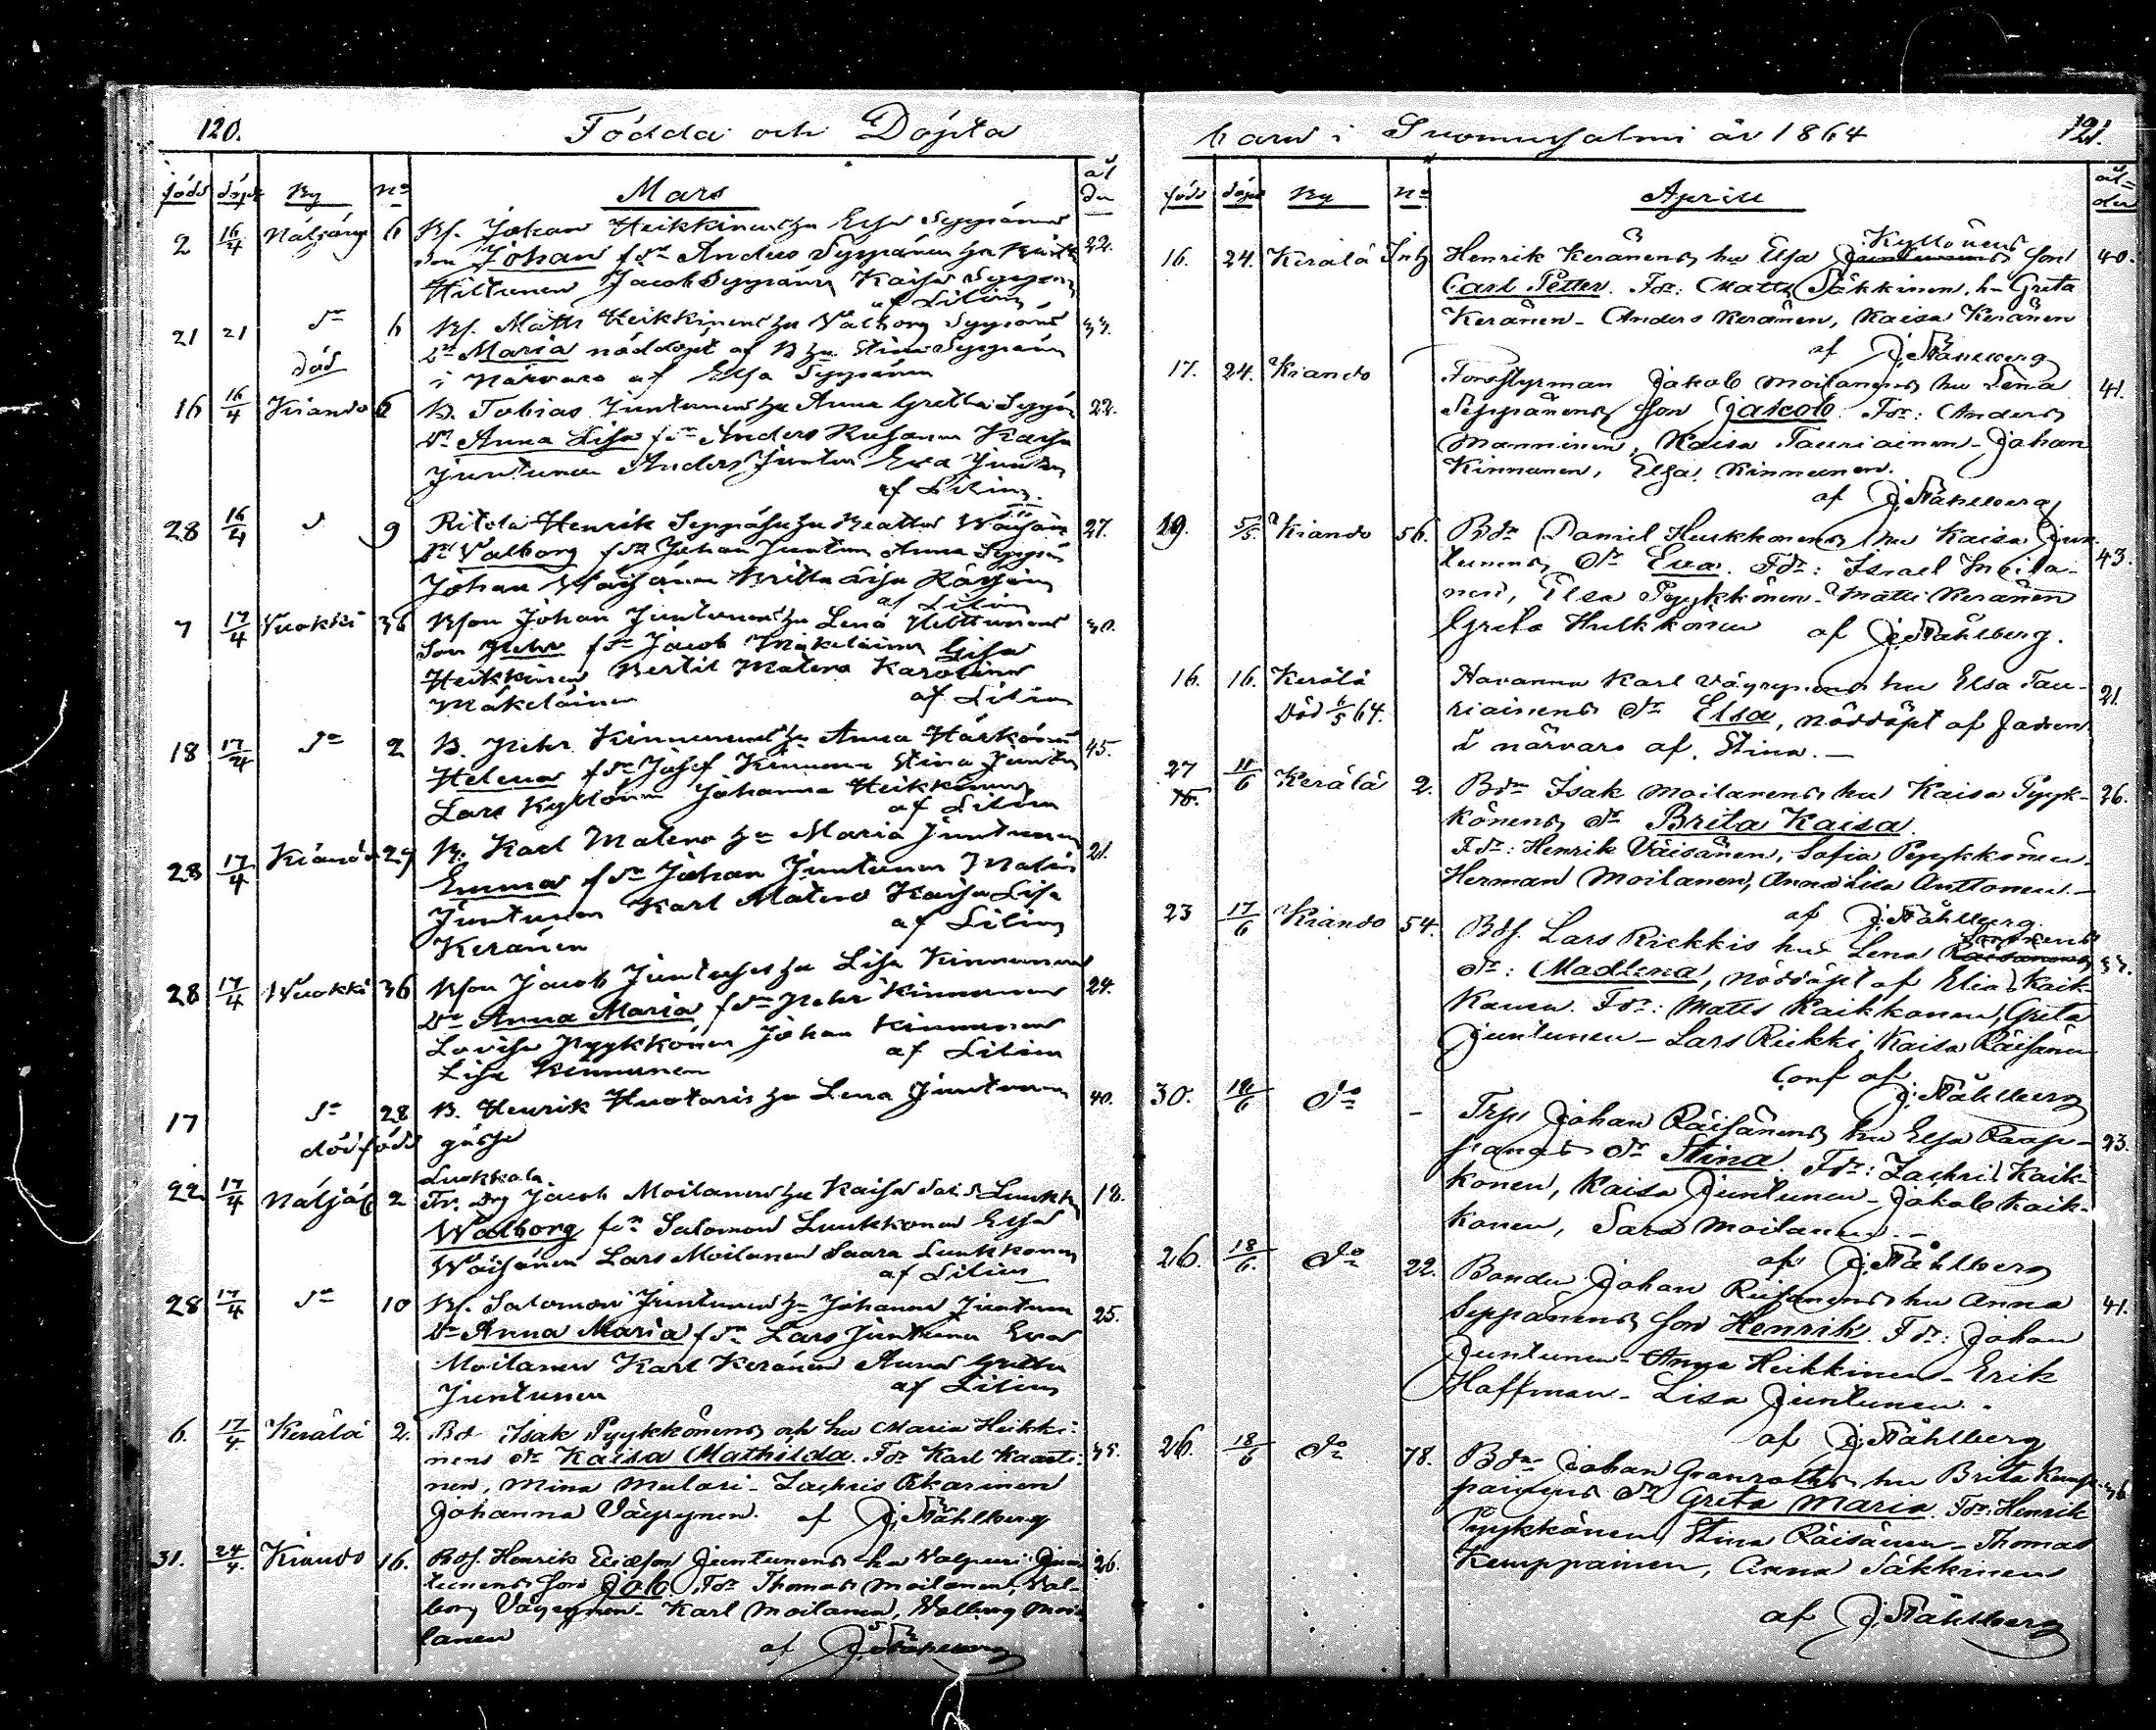 120.
Födda och Döpta
född döpt By No Mars ålder
2 16/4 Näljäng 6 Bf. Johan Heikkinens hu Elsa Seppänens 22.
son Johan fdr Anders Seppänen hu
Hiltunen Jacob Seppänen Kaisa Seppänen
af Lilius
21 21 do 6 Bf. Matts Heikkinens hu Valborg Seppäns
död dr Maria nöddöpt af Stina Seppänen
i närvaro af Elsa Seppänen
16 16/4 Kiando 6 B. Tobias Juntunens hu Anna Gretha 22.
dr Anna Lisa fdr Anders Kaisa
Juntunen Anders Juntun Eva Juntun
af Lilius.
28 16/4 9 Ritola Henrik Seppäs hu Beatta Wäisän 27.
dr Valborg fdr Johan Juntun Anna Seppän
Johan Wäisänen Britta Räisän
af Lilius
7 17/4 Vuokki 36 Bson Johan Juntunens hu Lena Hiltunens 30.
Son Petter fdr Jacob Mäkeläinen Lisa
Heikkinen Bertil Matero Karolina
Mäkeläinen af Lilius
18 17/4 do 2 B. Petter Kinnunens hu Anna Härkönens 45.
Helena fdr Josef Kinnunen Stina Juntun
Lars Kyllönen Johanna Heikkinen
af Lilius
28 17/4 Kiando 29 B. Karl Matero hu Maria Juntunen 21.
Emma fdr Johan Juntunen
Juntunen Karl Matero Kaisa Lisa
Keränen af Lilius
28 17/4 Wuokki 36 Bson Jacob Juntus hu Lisa Kinnunen 24.
dr Anna Maria fdr Petter Kinnunen
Lovisa Pyykkönen Johan Kinnunen
Lisa Kinnunen af Lilius
17 do 28 B. Henrik Huotaris hu Lena Juntunen 40.
dödfödd gosse
Luokkala
22 17/4 Näljäk 2 Tr. Drg Jacob Moilanens hu Kaisa 18.
Walborg fdr Salomon Luukkonen Elsa
Wäisänen Lars Moilanen Saara Luukkonen
af Lilius
28 17/4 do 10 Bf. Salomon Juntunens hu Johanna Juntunen 25.
dr Anna Maria fdr Lars Juntunen Eva
Moilanen Karl Keränen Anna Gretha
Juntunen af Lilius
6. 17/4 Kerälä 2. Bd Isak Pyykkönens och hu Maria Heikki- 35.
nens dr Kaisa Mathilda. Fdr Karl Kaarti-
nen, Mina Mulari - Zachris Okarinen
Johanna Väyrynen. af J. Ståhlberg
31. 24/4. Kiando 16. Bdf. Henrik Ericsson Juntunens hu Valpuri Jun- 26.
tunens son Job Fdr Thomas Moilanen, Val-
borg Väyrynen - Karl Moilanen, Walborg Moi-
lanen af J. Ståhlberg
barn i Suomussalmi år 1864
121.
född döpt By No Aprill ål=der
16. 24. Kerälä Inh Henrik Keränens hu Elsa Kyllönens son 40.
Carl Petter. Fdr: Matts Säkkinen, h- Greta
Keränen - Anders Keränen, Kaisa Keränen
af J. Ståhlberg
17. 24. Kiando Forsstyrman Jakob Moilanens hu Lena 41.
Seppänens son Jakob. Fdr: Anders
Manninen, Kaisa Tauriainen - Johan
Kinnunen, Elsa Kinnunen.
af J. Ståhlberg
29. 5/5. Kiando 56. Bdr Daniel Hulkkonens hu Kaisa Jun- 43.
tunens dr Eva. Fdr: Israel
nen, Elsa Pyykkönen - Matti Keränen
Greta Hulkkonen af J. Ståhlberg.
16. 16. Kerälä Havanna Karl Väyrynens hu Elsa Tau- 21
Död 6/5 64. riainens dr Elsa, nöddöpt af
i närvaro af Stina. -
27 11/6 Kerälä 2. Bdr Isak Moilanens hu Kaisa Pyyk- 26.
könens dr Brita Kaisa.
Fdr: Henrik Väisänen, Sofia Pyykkönen.
Herman Moilanen, Anna Lisa Anttonen. -
af J. Ståhlberg.
23 17/6 Kiando 54. Bdf. Lars Riekkis hu Lena 37.
dr: Madlena, nöddöpt af Elias Kaik-
konen. Fdr: Matts Kaikkonen, Greta
Juntunen - Lars Riekki, Kaisa Räisänen
Conf af J. Ståhlberg
30. 18/6 do - Trp Johan Räisänens hu Elsa 23.
dr Stina. Fdr: Zachris Kaik-
konen, Kaisa Juntunen - Jakob Kaik-
konen, Sara Moilanen. -
af J. Ståhlberg
26. 18/6. do 22. Bonden Johan Räisänens hu Anna 41.
Seppänens son Henrik. Fdr: Johan
Juntunen - Anna Heikkinen - Erik
Hoffman - Lisa Juntunen.
af J. Ståhlberg
26. 18/6 do 78. Bdr Johan Granroths hu Brita Kemp- 36
painens dr Greta Maria. Fdr: Henrik
Pyykkönen, Stina Räisänen - Thomas
Kemppainen, Anna Säkkinen
af J. Ståhlberg